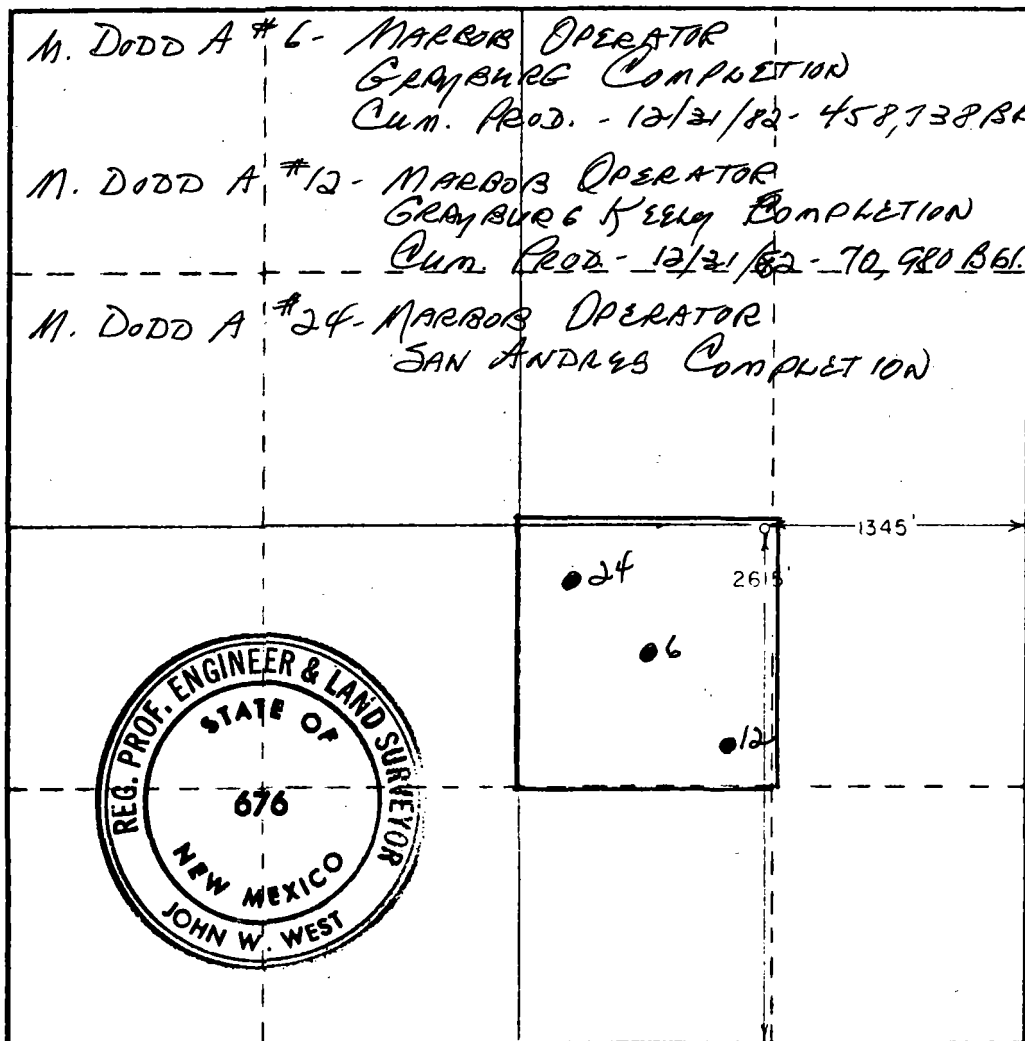 M. DODD A #6- MARBOB OPERATOR
GRAYBURG COMPLETION
CUM. PROD. - 12/31/82- 458,738 BB
M. DODD A #12- MARBOB OPERATOR
GRAYBURG KEELY COMPLETION
CUM. PROD- 12/31/82- 70,980 BBL.
M. DODD A #24- MARBOB OPERATOR
SAN ANDRES COMPLETION
1345'
24
2615'
6
12
REG. PROF. ENGINEER & LAND SURVEYOR
STATE OF
676
NEW MEXICO
JOHN W. WEST